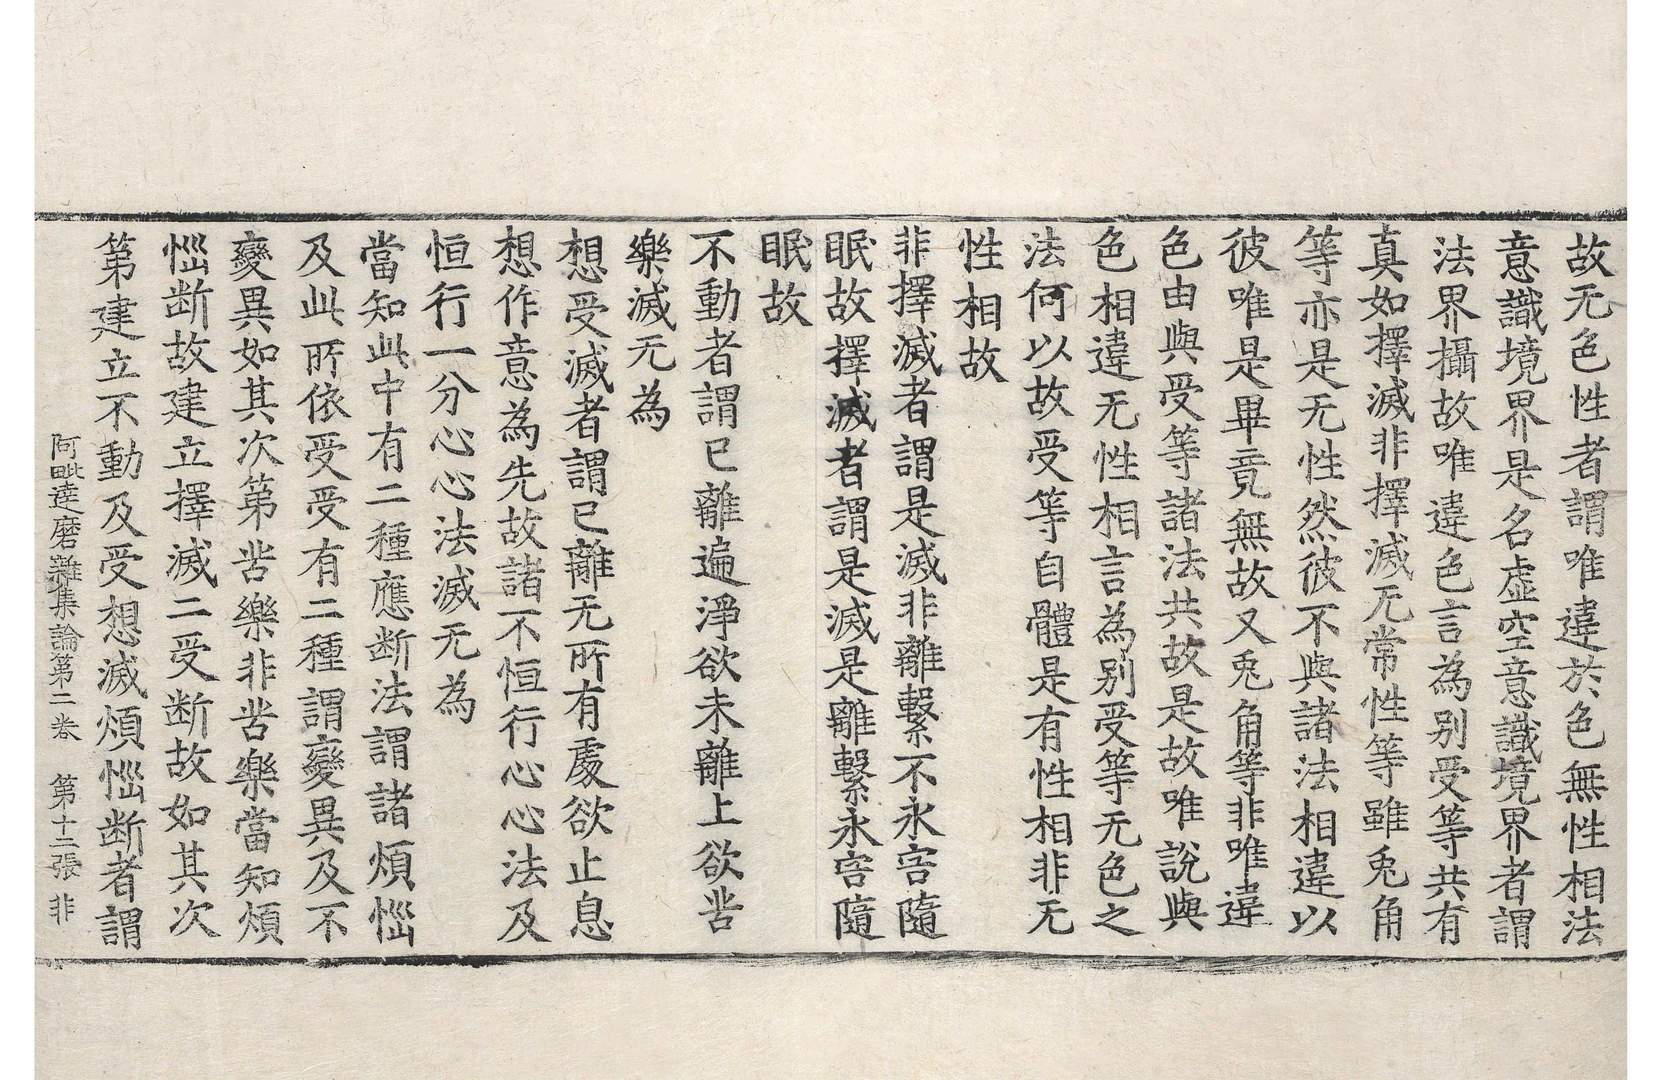 故无色性者謂唯違於色無性相法
意識境界是名虛空意識境界者謂
法界攝故唯違色言為別受等共有
真如擇滅非擇滅无常性等雖兎角
等亦是无性然彼不與諸法相違以
彼唯是畢竟無故又兎角等非唯違
色由與受等諸法共故是故唯說與
色相違无性相言為別受等无色之
法何以故受等自體是有性相非无
性相故
非擇滅者謂是滅非離繫不永害隨
眠故擇滅者謂是滅是離繫永害隨
眠故
不動者謂已離遍淨欲未離上欲苦
樂滅无為
想受滅者謂已離无所有處欲止息
想作意為先故諸不恒行心心法及
恒行一分心心法滅无為
當知此中有二種應断法謂諸煩惱
及此所依受受有二種謂變異及不
變異如其次第苦樂非苦樂當知煩
惱断故建立擇滅二受断故如其次
第建立不動及受想滅煩惱断者謂
阿毗達磨雜集論第二卷　第十二張　非